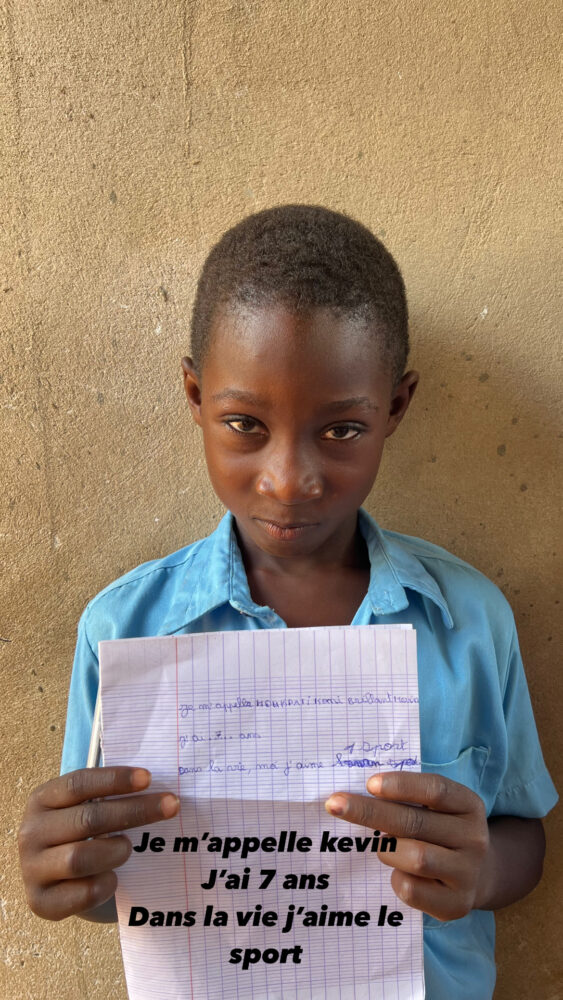 Je m'appelle
j'ai .7... ans
sport
Dans la vie, moi j'aime
Je m'appelle kevin
J'ai 7 ans
Dans la vie j'aime le
sport